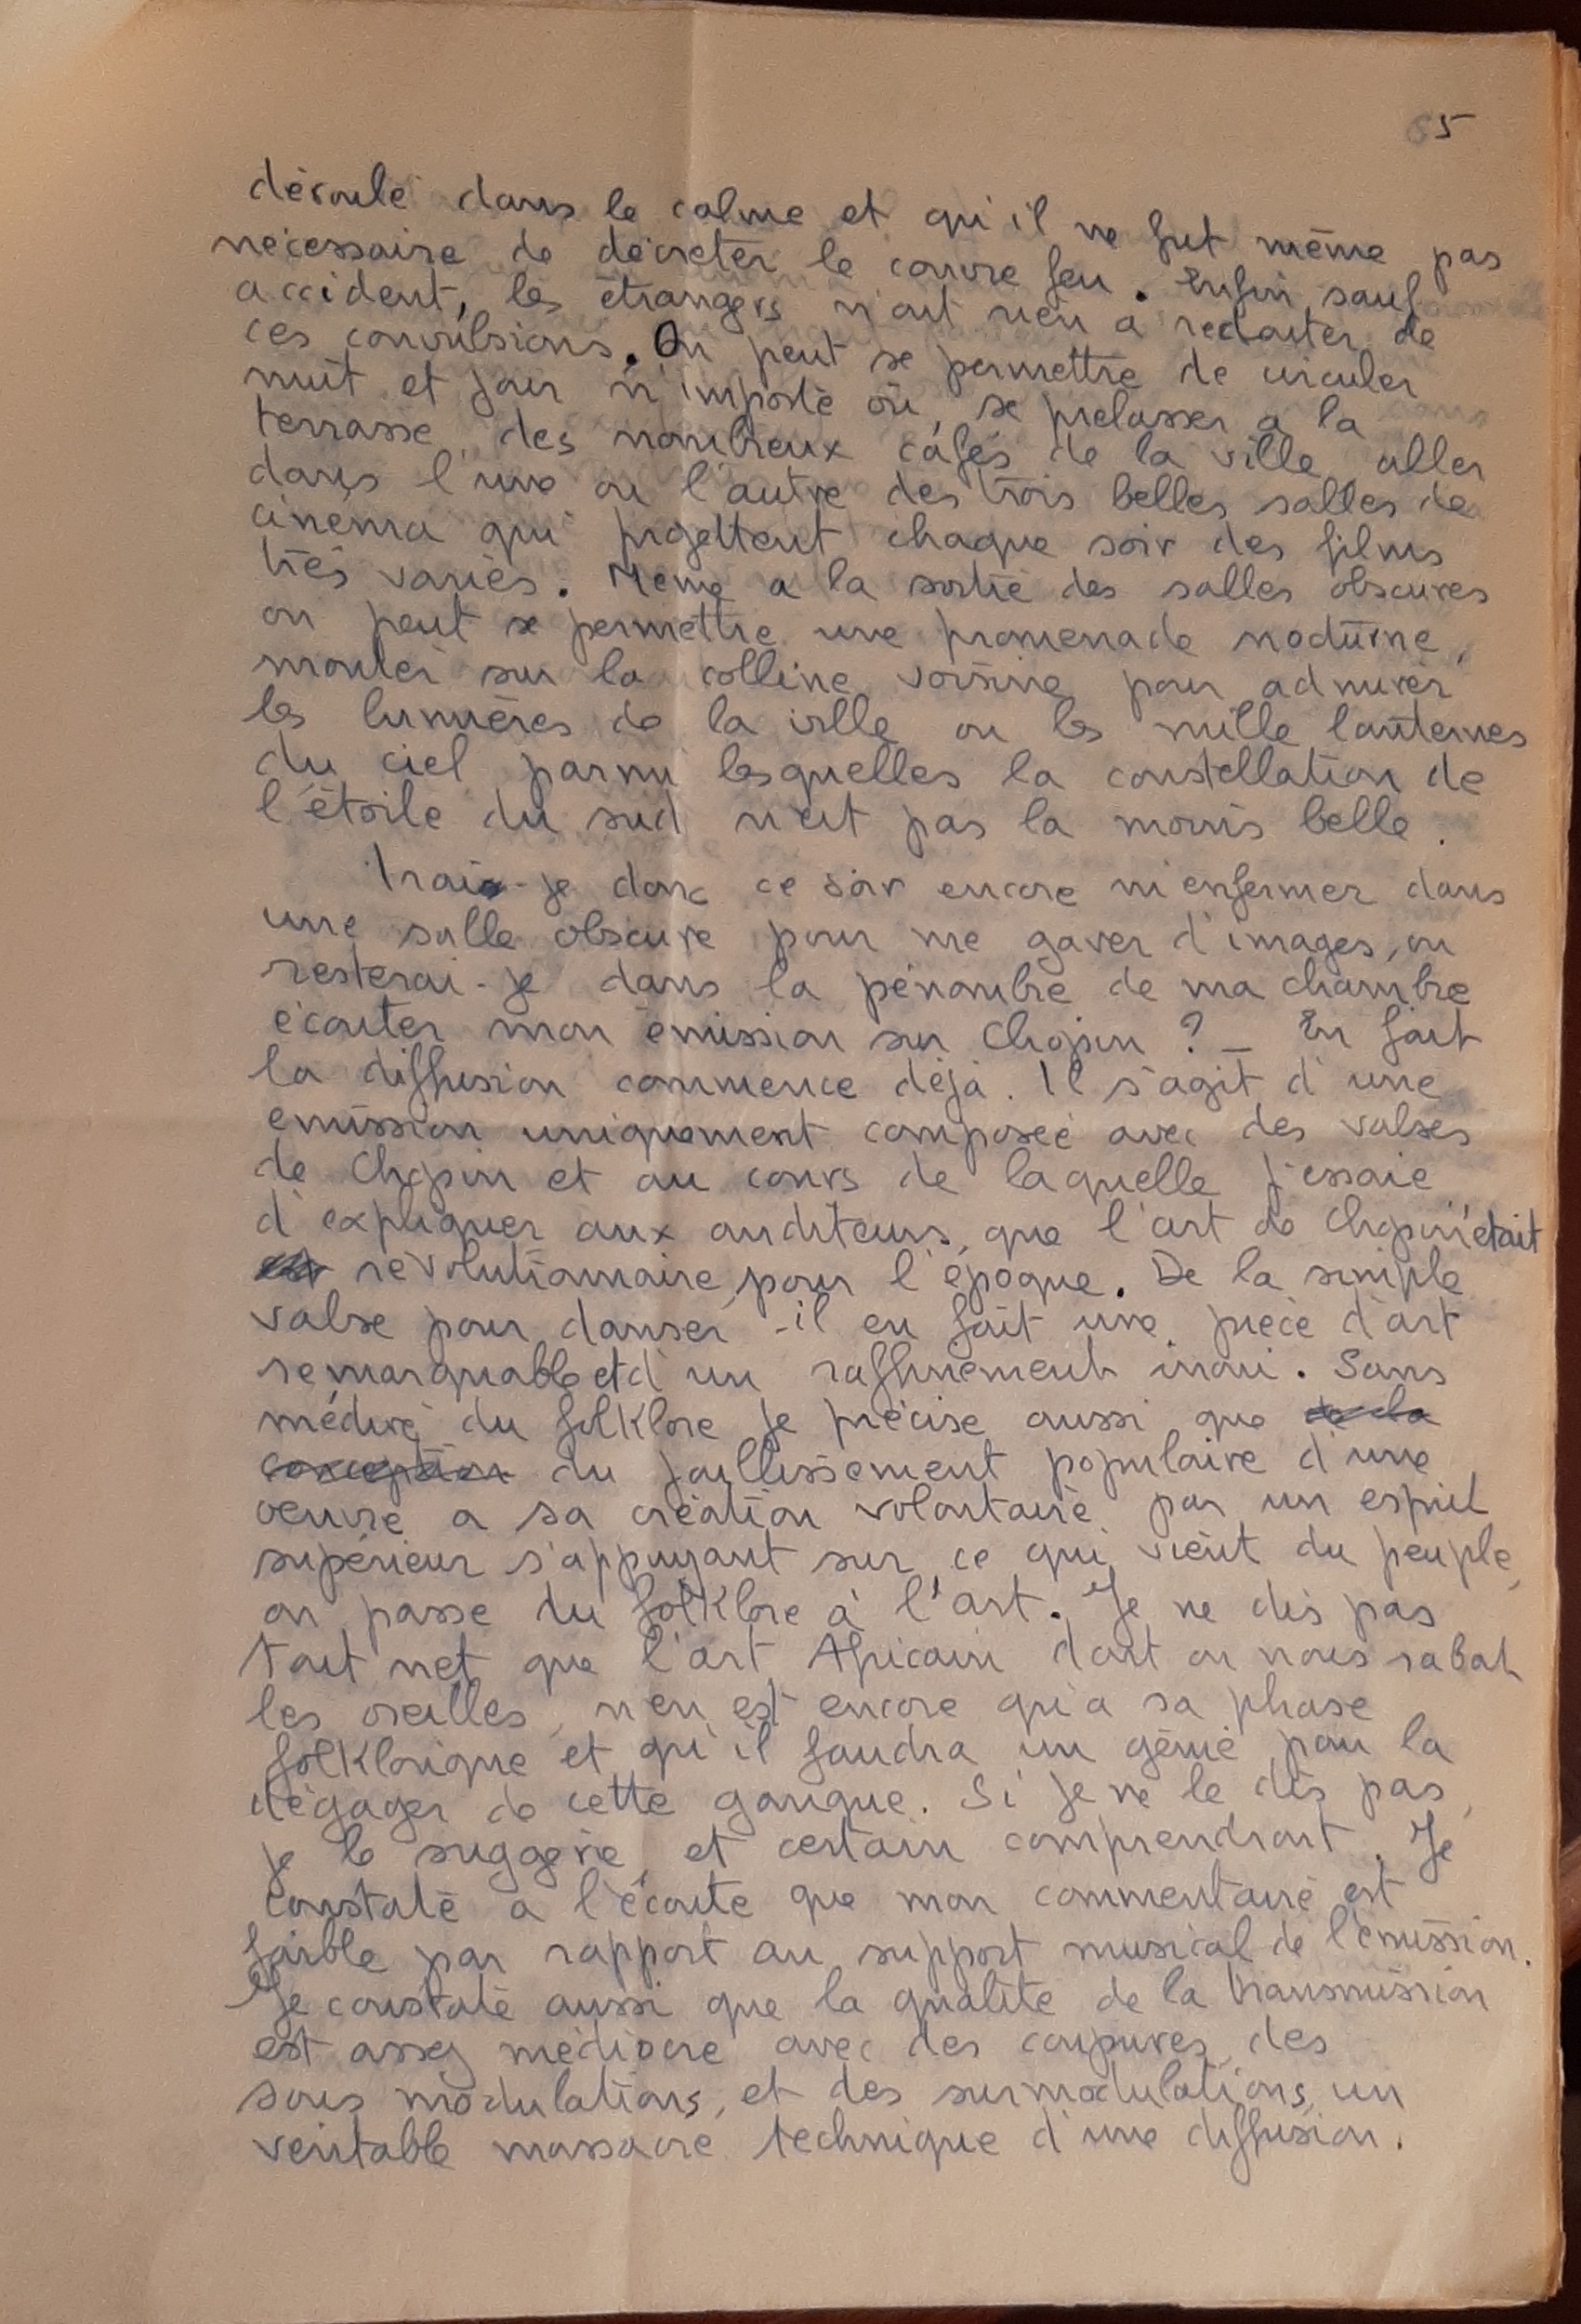 65
déroulé dans le calme et qu'il ne fut même pas
nécessaire de décréter le couvre feu. Enfin, sauf
accident, les étrangers n'ont rien à redouter de
ces convulsions. On peut se permettre de circuler
nuit et jour n'importe où, se prelasser a la
terrasse des nombreux cafés de la ville aller
dans l'une ou l'autre des trois belles salles de
cinéma qui projettent chaque soir des films
très variés. Même a la sortie des salles obscures
on peut se permettre une promenade nocturne,
monter sur la colline voisine pour admirer
les lumières de la ville ou les mille lanternes
du ciel parmi lesquelles la constellation de
l'étoile du sud n'est pas la moins belle.
Irai-je donc ce soir encore m'enfermer dans
une salle obscure pour me gaver d'images, ou
resterai-je dans la pénombre de ma chambre
écouter mon émission sur Chopin ? _ En fait
la diffusion commence déjà. Il s'agit d'une
emission uniquement composée avec des valses
de Chopin et au cours de laquelle j'essaie
d'expliquer aux auditeurs, que l'art de Chopin était
est revolutionnaire pour l'époque. De la simple
valse pour danser - il en fait une pièce d'art
remarquable et d'un raffinement inoui. Sans
médire du folklore je précise aussi que de la
conception du jaillissement populaire d'une
oeuvre a sa création volontaire par un esprit
supérieur s'appuyant sur ce qui vient du peuple,
on passe du folklore à l'art. Je ne dis pas
tout net que l'art Africain dont on nous rabat
les oreilles, n'en est encore qu'a sa phase
folklorique et qu'il faudra un génie pour la
dégager de cette gangue. Si je ne le dis pas,
je le suggère, et certain comprendront. Je
constate a l'écoute que mon commentaire est
faible par rapport au support musical de l'émission.
Je constate aussi que la qualité de la transmission
est assez médiocre avec des coupures, des
sous modulations, et des surmodulations, un
véritable massacre technique d'une diffusion.